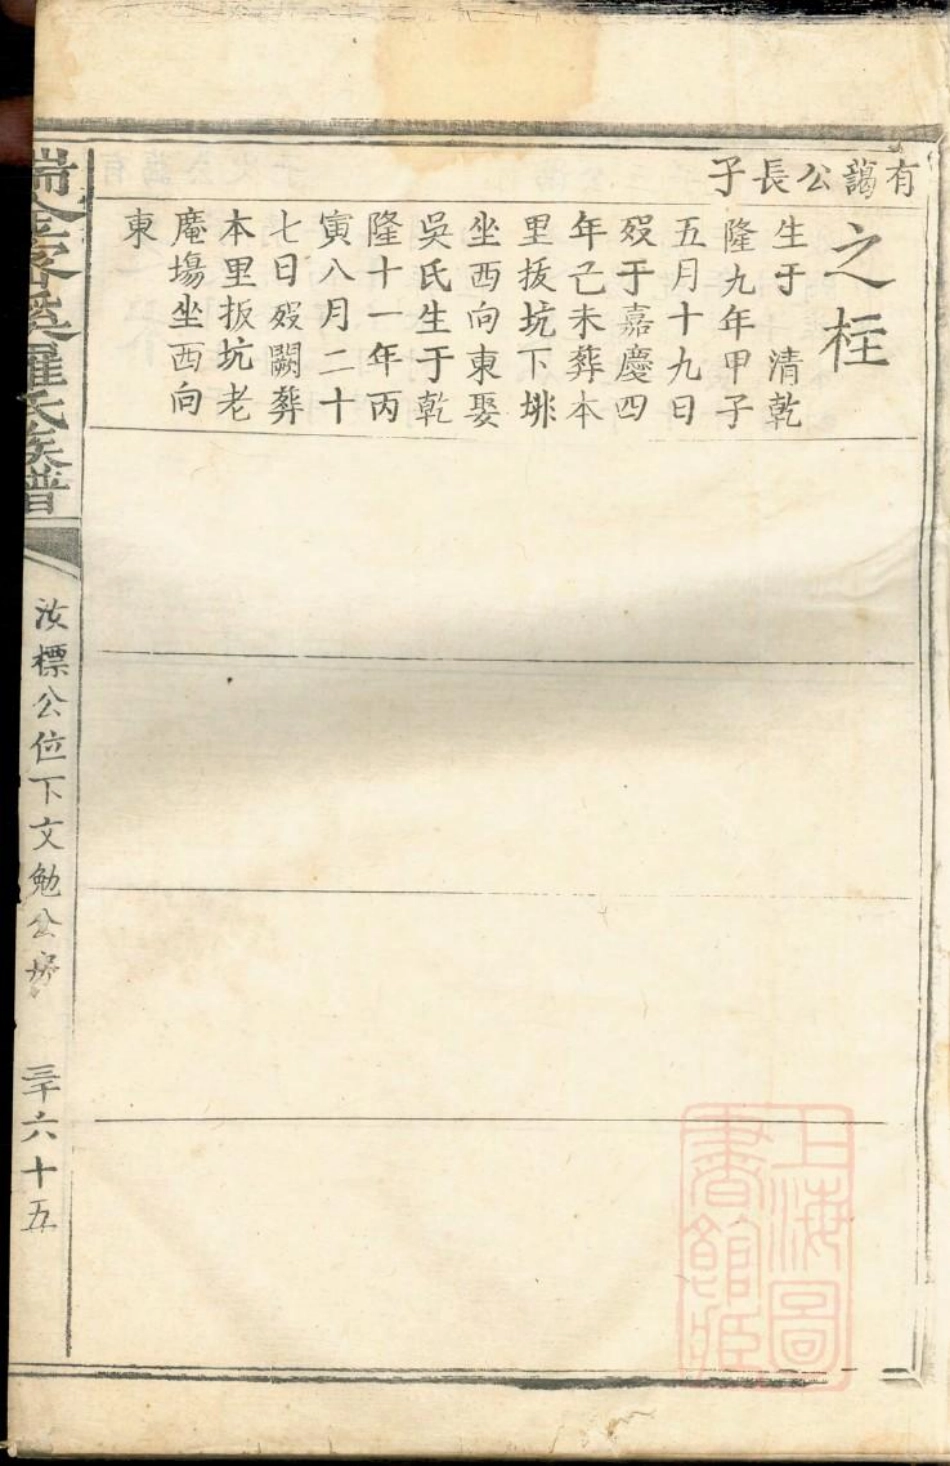 有譪公長子
之柱
生于　清乾
隆九年甲子
五月十九日
殁于嘉慶四
年己未葬本
里扳坑下㘨
坐西向東娶
吳氏生于乾
隆十一年丙
寅八月二十
七日殁闕葬
本里扳坑老
庵塲坐西向
東
羅氏族譜
汝標公位下文勉公房
三千六十五
上海圖書館藏